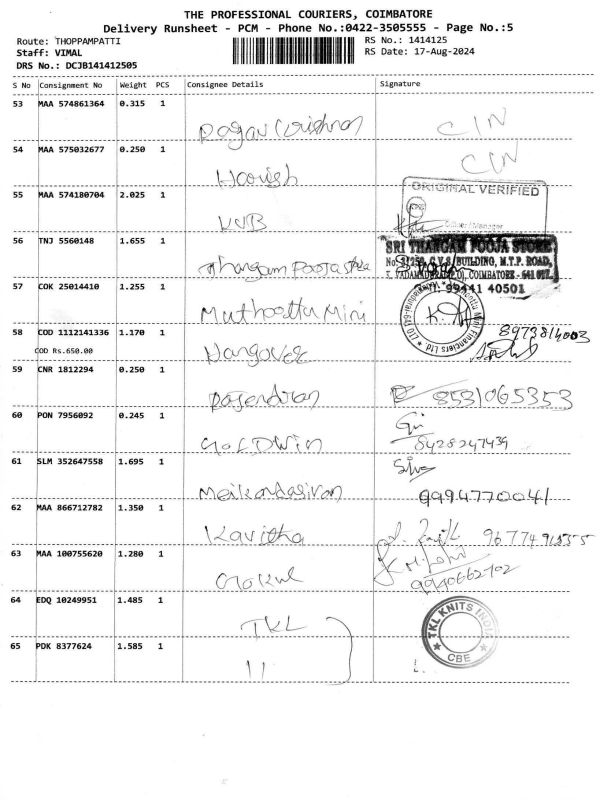 THE PROFESSIONAL COURIERS, COIMBATORE
Delivery Runsheet - PCM - Phone No.:0422-3505555 - Page No.:5
Route: THOPPAMPATTI
RS No.: 1414125
Staff: VIMAL
RS Date: 17-Aug-2024
DRS No.: DCJB141412505
S No Consignment No Weight PCS Consignee Details Signature
53 MAA 574861364 0.315 1
CIN
54 MAA 575032677 0.250 1
Harish
55 MAA 574180704 2.025 1 KVB
ORIGINAL VERIFIED
56 TNJ 5560148 1.655 1 Thangam Pooja Store
SRI THANGAM POOJA STORE
BUILDING, M.T.P. ROAD,
COIMBATORE - 641
99441 40501
57 COK 25014410 1.255 1 Muthoottu Mini
58 COD 1112141336 1.170 1 Hangover
COD Rs.650.00
59 CNR 1812294 0.250 1 Rajendran 8531065353
60 PON 7956092 0.245 1 GOLDWIN
8428247439
61 SLM 352647558 1.695 1 Meikandasivan
9994770041
62 MAA 866712782 1.350 1 Kavitha
63 MAA 100755620 1.280 1 Gokul
64 EDQ 10249951 1.485 1 TKL
TKL KNITS INDIA
CBE
65 PDK 8377624 1.585 1 11